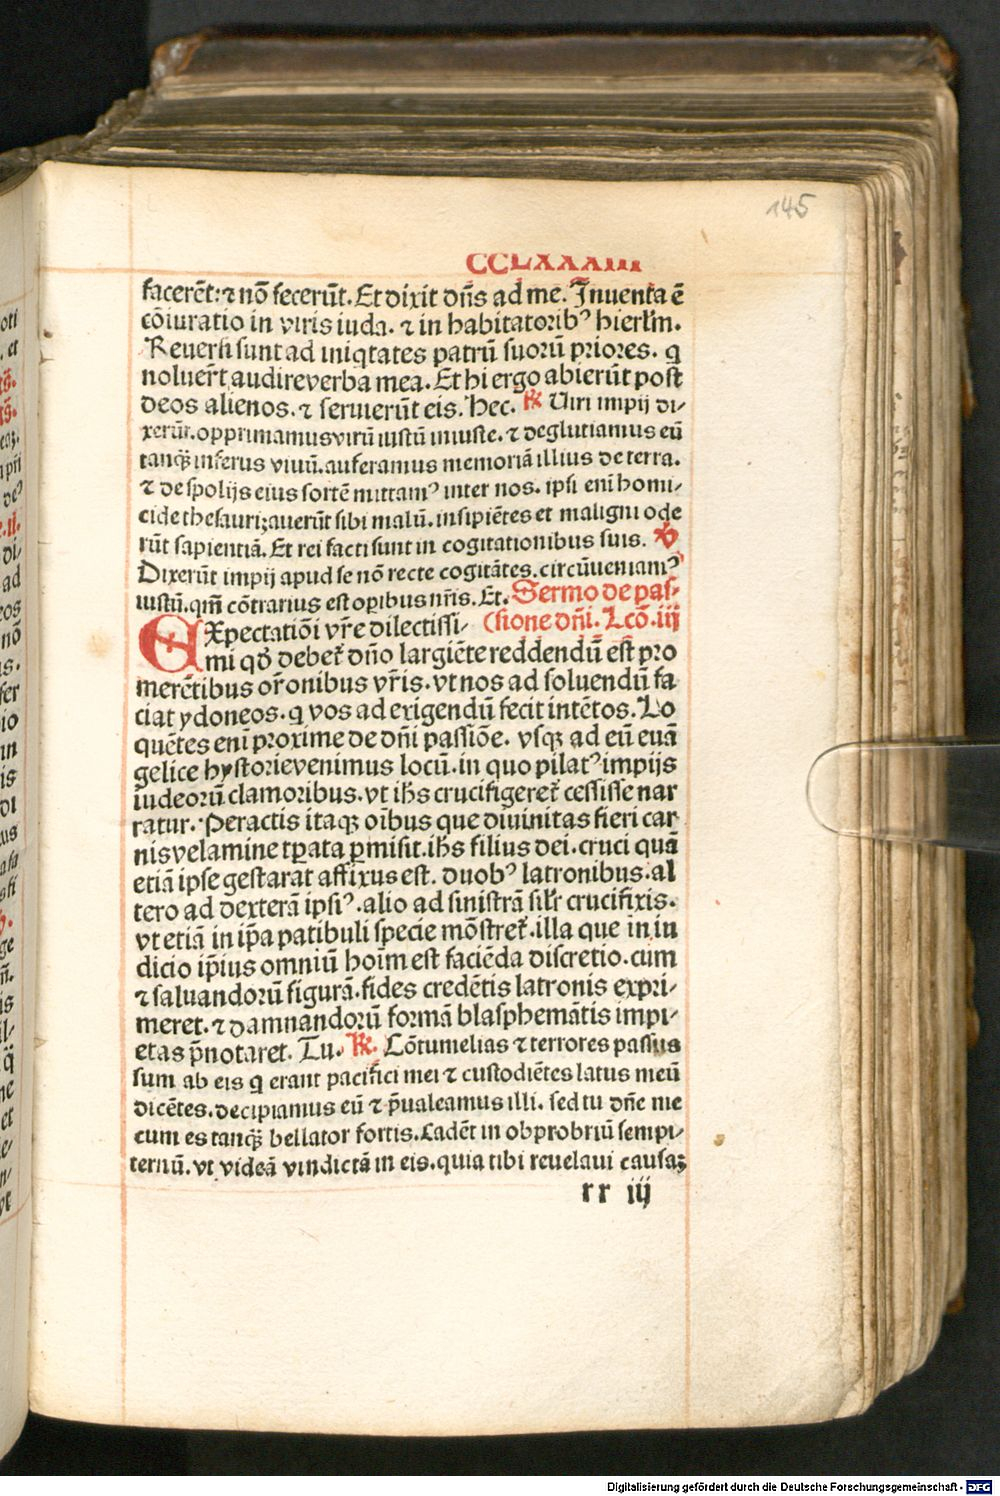 145
CCLXXXIIII
facerēt: ⁊ nō fecerūt. Et dixit dn̄s ad me. Inuenta ē
cōiuratio in viris iuda. ⁊ in habitatoribꝰ hierlm̄.
Reuersi sunt ad iniqtates patrū suorū priores. q
noluer̄t audire verba mea. Et hi ergo abierūt post
deos alienos. ⁊ seruierūt eis. Hec. ℟ Uiri impij di⸗
xerūt. opprimamus virū iustū iniuste. ⁊ deglutiamus eū
tanqꝫ̄ inferus viuū. auferamus memoriā illius de terra.
⁊ de spolijs eius sortē mittamꝰ inter nos. ipsi enī homi⸗
cide thesaurizauerūt sibi malū. insipiētes et maligni ode
rūt sapientiā. Et rei facti sunt in cogitationibus suis. ℣
Dixerūt impij apud se nō recte cogitātes. circūueniamꝰ
iustū. qm̄ cōtrarius est oꝑibus nr̄is. Et. Sermo de pas⸗
Expectatiōi vr̄e dilectissi⸗ (sione dn̄i. Lcō. iij
mi qđ debet᷑ dn̄o largiēte reddendū est pro
merētibus or̄onibus vr̄is. vt nos ad soluendū fa
ciat ydoneos. q vos ad exigendū fecit intētos. Lo
quētes enī proxime de dn̄i passiōe. vsqꝫ ad eū euā
gelice hystorie venimus locū. in quo pilatꝰ impijs
iudeorū clamoribus. vt ih̄s crucifigeret᷑ cessisse nar
ratur. Peractis itaqꝫ oībus que diuinitas fieri car
nis velamine tꝑata ꝑmisit. ih̄s filius dei. cruci quā
etiā ipse gestarat affixus est. duobꝰ latronibus. al
tero ad dexterā ipsiꝰ. alio ad sinistrā sil'r crucifixis.
vt etiā in ip̄a patibuli specie mōstret᷑. illa que in iu
dicio ip̄ius omniū hoīm est faciēda discretio. cum
⁊ saluandorū figurā. fides credētis latronis expri⸗
meret. ⁊ damnandorū formā blasphemātis impi⸗
etas p̄notaret. Tu. ℟. Cōtumelias ⁊ terrores passus
sum ab eis q erant pacifici mei ⁊ custodiētes latus meū
dicētes. decipiamus eū ⁊ p̄ualeamus illi. sed tu dn̄e me
cum es tanqꝫ̄ bellator fortis. Cadēt in obprobriū sempi⸗
ternū. vt videā vindictā in eis. quia tibi reuelaui causaꝫ
rr iij
Digitalisierung gefördert durch die Deutsche Forschungsgemeinschaft - DFG